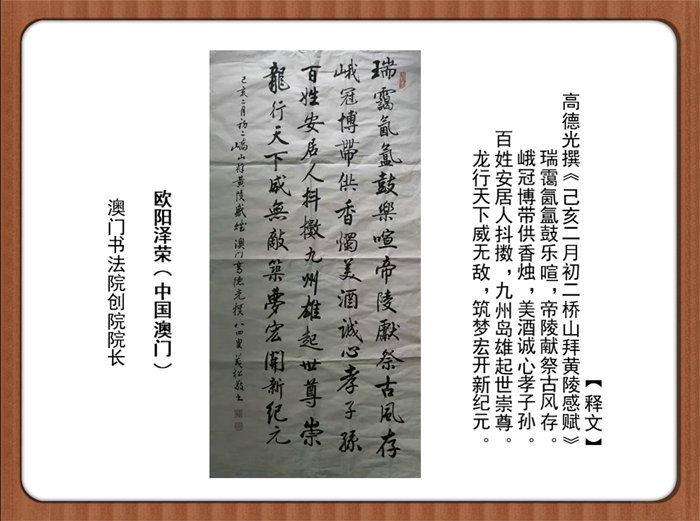 【释文】
高德光撰《己亥二月初二桥山拜黄陵感赋》
瑞霭氤氲鼓乐喧，帝陵献祭古风存。
峨冠博带供香烛，美酒诚心孝子孙。
百姓安居人抖擞，九州岛雄起世崇尊。
龙行天下威无敌，筑梦宏开新纪元。
瑞靄氤氳鼓樂喧帝陵獻祭古風存
峨冠博帶供香燭美酒誠心孝子孫
百姓安居人抖擻九州雄起世尊崇
龍行天下威無敵築夢宏開新紀元
己亥二月初二橋山拜黄陵感赋 澳门高德光撰 八四叟
欧阳泽荣（中国澳门）
澳门书法院创院院长